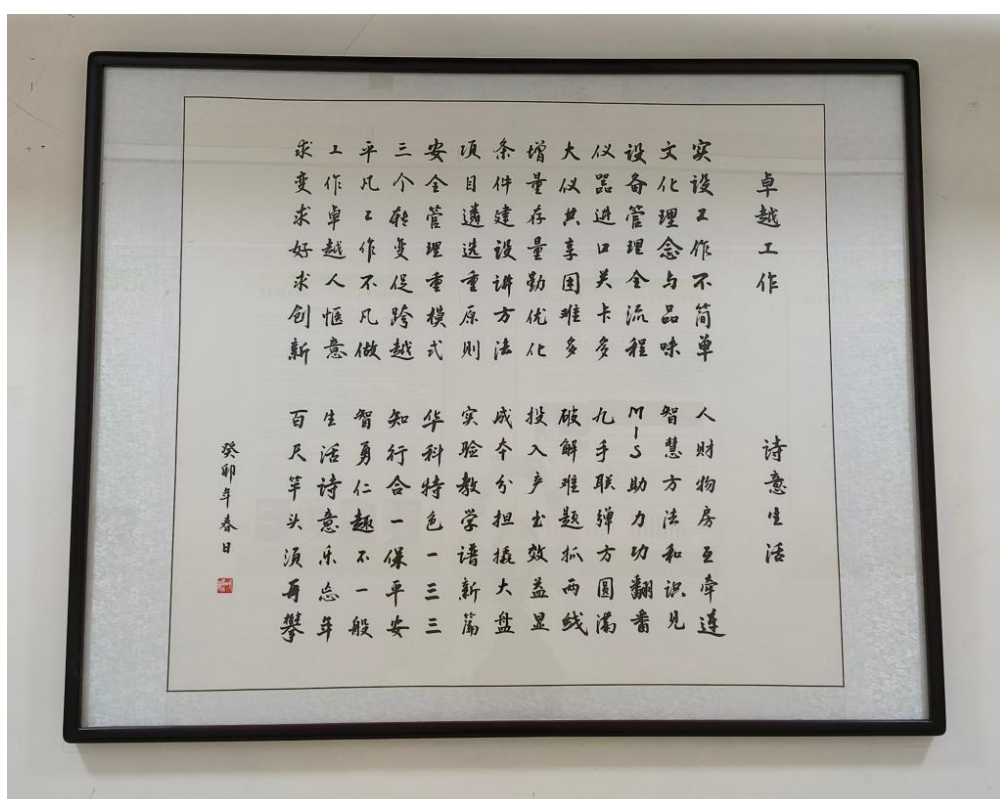 卓越工作 诗意生活
实设工作不简单 人财物房互牵连
文化理念与品味 智慧方法和识见
设备管理全流程 MIS助力功翻番
仪器进口关卡多 九手联弹方圆满
大仪共享困难多 破解难题抓两线
增量存量勤优化 投入产出效益显
条件建设讲方法 成本分担撬大盘
项目遴选重原则 实验教学谱新篇
安全管理重模式 华科特色一三三
三个转变促跨越 知行合一保平安
平凡工作不凡做 智勇仁趣不一般
工作卓越人惬意 生活诗意乐忘年
求变求好求创新 百尺竿头须再攀
癸卯年春日